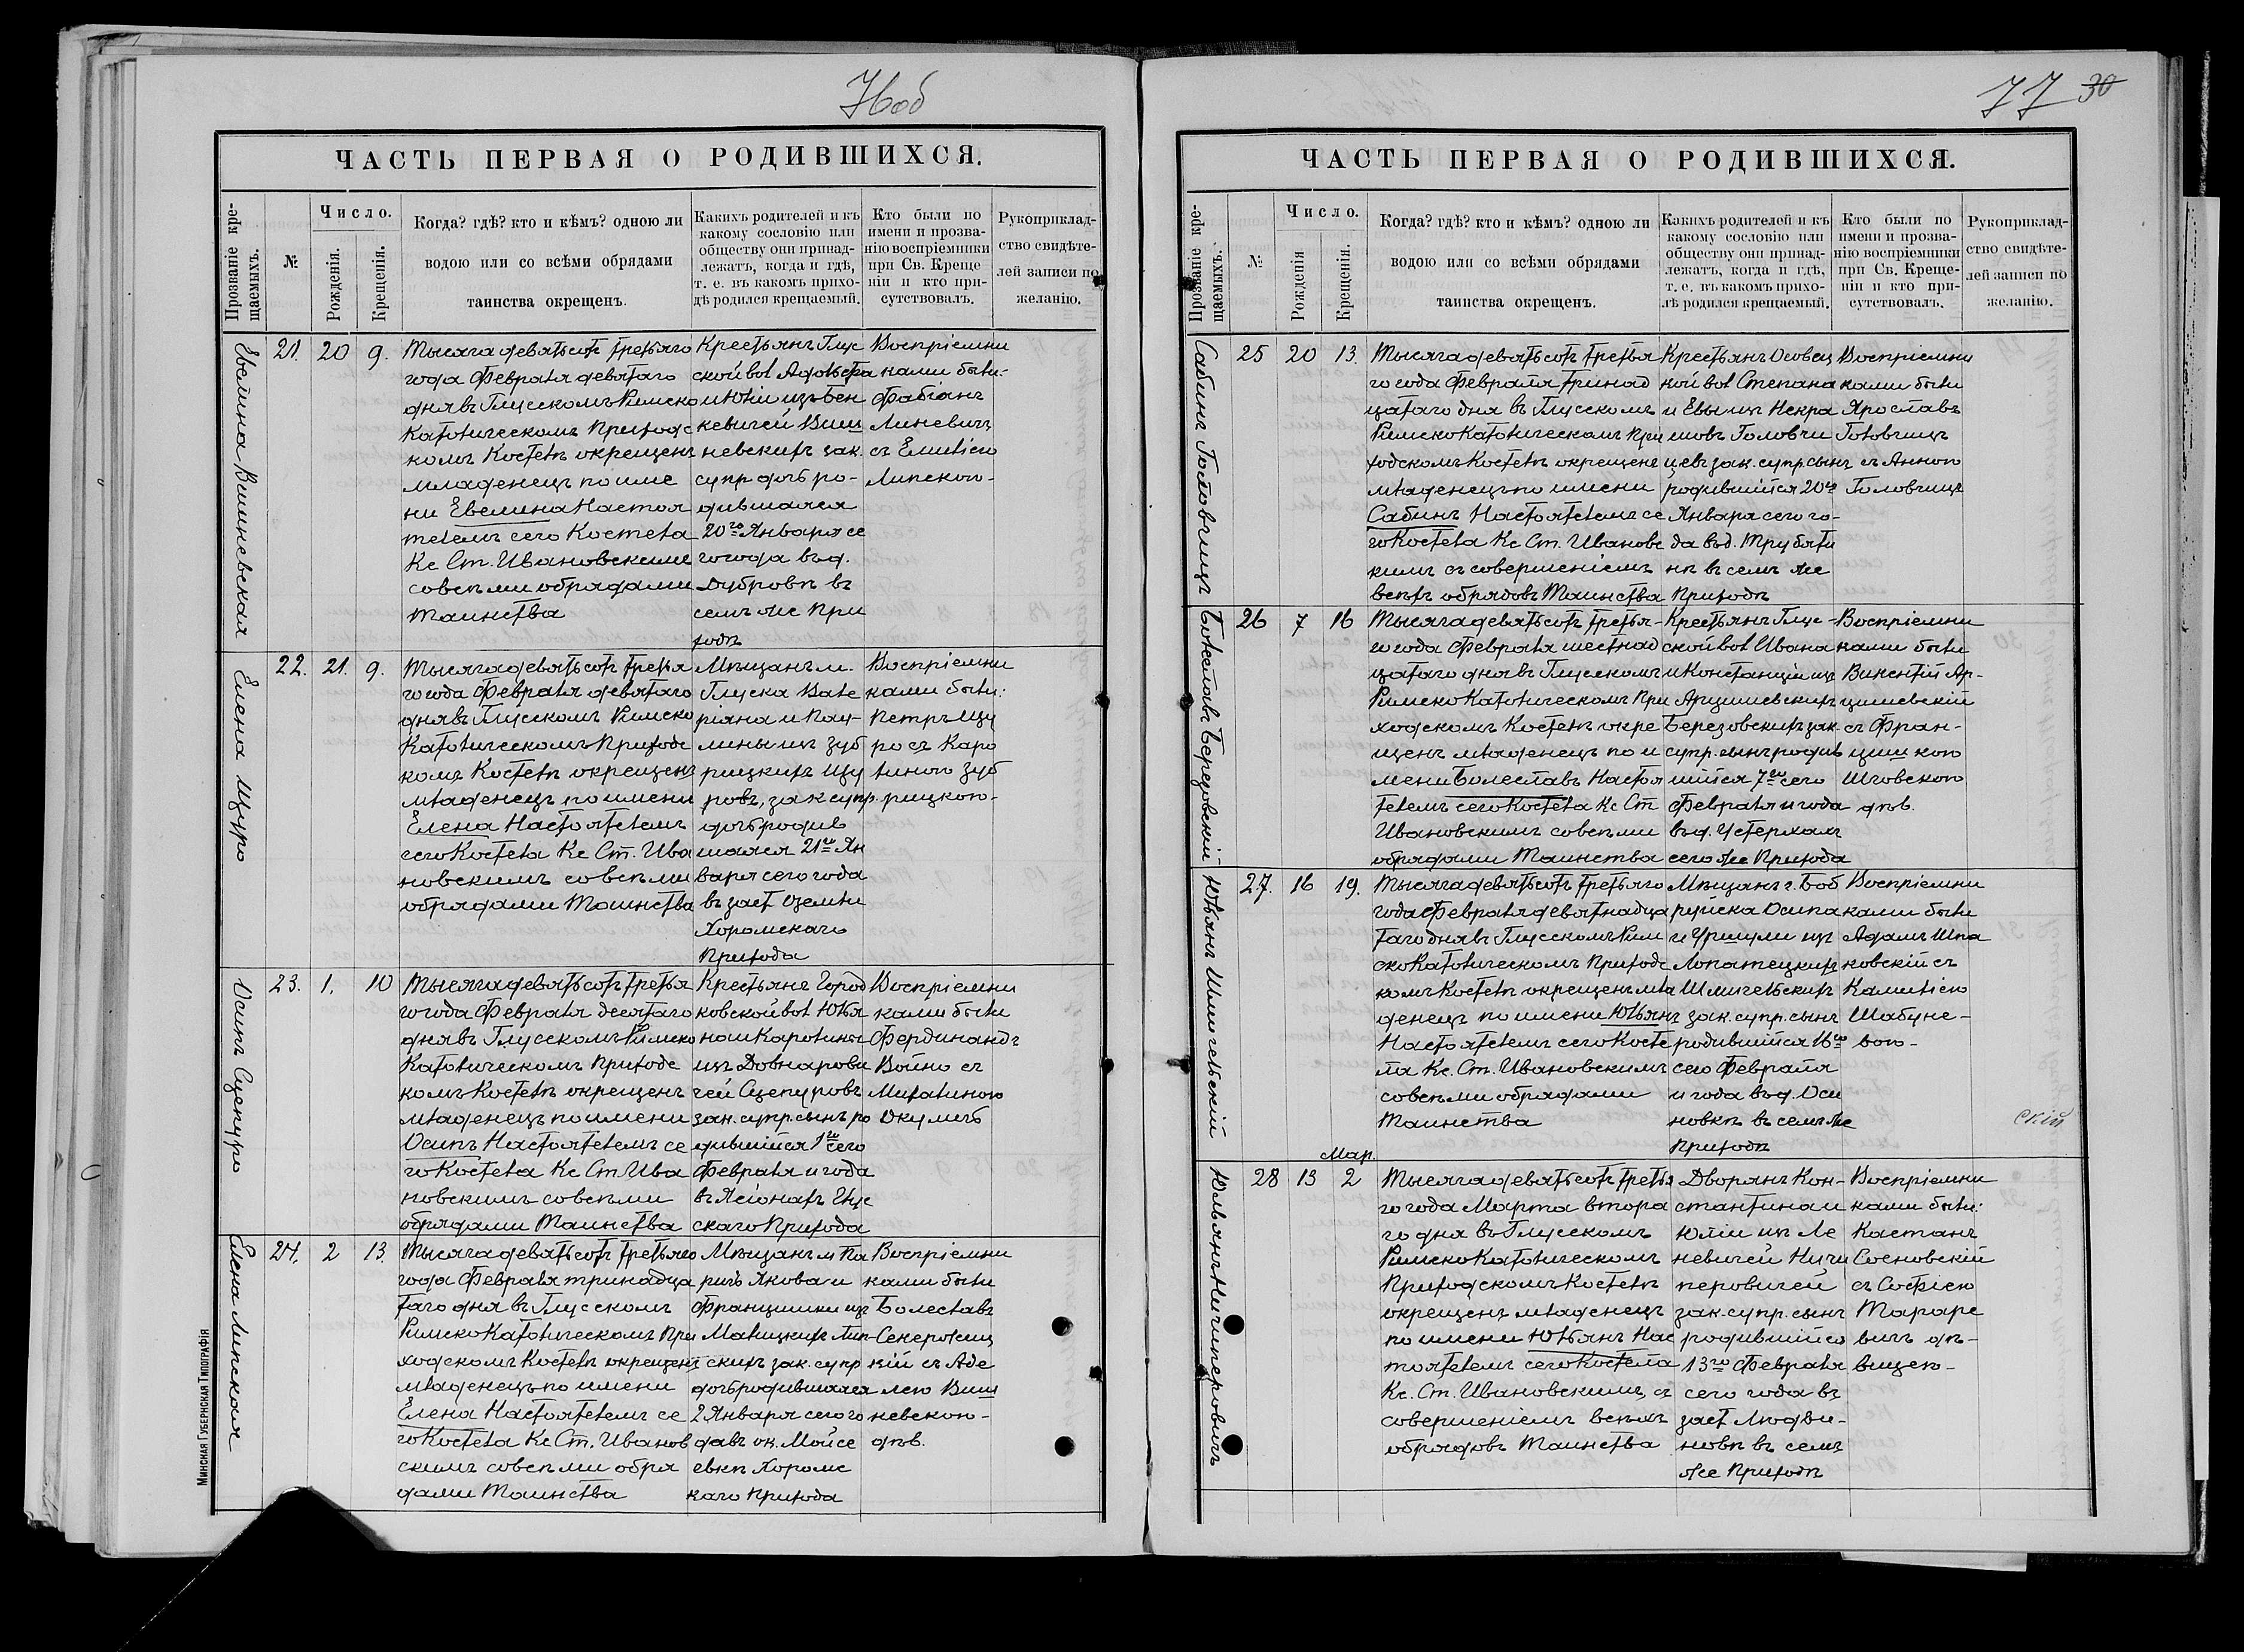 76об
ЧАСТЬ ПЕРВАЯ О РОДИВШИХСЯ.
Прозваніе кре-
щаемыхъ.
№
Число.
Рожденія.
Крещенія.
Когда? гдѣ? кто и кѣмъ? одною ли
водою или со всѣми обрядами
таинства окрещенъ.
Какихъ родителей и къ
какому сословію или
обществу они принад-
лежатъ, когда и гдѣ,
т. е. въ какомъ прихо-
дѣ родился крещаемый.
Кто были по
имени и прозва-
нію воспріемники
при Св. Креще
ніи и кто при-
сутствовалъ.
Рукоприклад-
ство свидѣте-
лей записи по
желанію.
Евелина Вишневская
21. 20 9.
Тысяча девятьсотъ третьяго
года Февраля девятаго
дня въ Глусскомъ Римско
Католическомъ Приходс
комъ Костелѣ окрещенъ
младенецъ по име
ни Евелина Настоя
телемъ сего Костела
Кс Ст. Ивановскимъ
совсѣми обрядами
Таинства
Крестьянъ Глус
ской вол Адольфа
и Юліи изъ Бен
кевичей Виш
невскихъ зак.
супр дочь ро-
дившаяся
20го Января се
го года въ д.
Дубровѣ въ
семъ же При
ходѣ
Воспріемни
ками были:
Фабіанъ
Линевичъ
съ Емиліею
Липскою-
Елена Щуро
22. 21. 9.
Тысяча девятьсотъ третья
го года Февраля девятаго
дня въ Глусскомъ Римско
Католическомъ Приходс
комъ Костелѣ окрещенъ
младенецъ по имени
Елена Настоятелемъ
сего Костела Кс Ст. Ива
новскимъ совсѣми
обрядами Таинства
Мѣщанъ м.
Глуска Вале
ріяна и Пау-
лины изъ Зуб
рицкихъ Щу
ровъ, зак супр.
дочь родив
шаяся 21го Ян
варя сего года
въ заст Оземли
Хоромскаго
Прихода
Воспріемни
ками были:
Петръ Щу
ро съ Каро
линою Зуб
рицкою-
Осипъ Сцепуро
23. 1. 10
Тысяча девятьсотъ третья
го года Февраля десятаго
дня въ Глусскомъ Римско
Католическомъ Приходс
комъ Костелѣ окрещенъ
младенецъ по имени
Осипъ Настоятелемъ се
го Костела Кс Ст Ива
новскимъ совсѣми
обрядами Таинства
Крестьянъ Город
ковской вол Юлья
на и Каролины
изъ Довнарови
чей Сцепуровъ
зак. супр. сынъ ро
дившійся 1го сего
Февраля и года
въ Ясіонахъ Глус
скаго Прихода
Воспріемни
ками были
Фердинандъ
Война съ
Михалиною
Окуличъ
Елена Липская
24. 2 13.
Тысяча девятьсотъ третьяго
года Февраля тринадца
таго дня въ Глусскомъ
Римско Католическомъ При
ходскомъ Костелѣ окрещенъ
младенецъ по имени
Елена Настоятелемъ се
го Костела Кс Ст. Иванов
скимъ совсѣми обря
дами Таинства
Мѣщанъ м Па
ричъ Якова и
Францишки изъ
Малицкихъ Лип-
скихъ зак. супр
дочь родившаяся
2 Января сего го
да въ ок. Мойсе
евкѣ Хоромс
каго Прихода
Воспріемни
ками были
Болеславъ
Секержиц
кій съ Аде
лею Виш
невскою-
дѣв.
Минская Губернская Типографія
77 30
ЧАСТЬ ПЕРВАЯ О РОДИВШИХСЯ.
Прозваніе кре-
щаемыхъ.
№
Число.
Рожденія
Крещенія.
Когда? гдѣ? кто и кѣмъ? одною ли
водою или со всѣми обрядами
таинства окрещенъ.
Какихъ родителей и къ
какому сословію или
обществу они принад-
лежатъ, когда и гдѣ,
т. е. въ какомъ прихо-
дѣ родился крещаемый.
Кто были по
имени и прозва-
нію воспріемники
при Св. Креще-
ніи и кто при-
сутствовалъ.
Рукоприклад-
ство свидѣте-
лей записи по
желанію.
Сабинъ Головчицъ
25 20 13.
Тысяча девятьсотъ третья
го года Февраля тринад
цатаго дня въ Глусскомъ
Римско Католическомъ При
ходскомъ Костелѣ окрещенъ
младенецъ по имени
Сабинъ Настоятелемъ се
го Костела Кс Ст. Ивановс
кимъ съ совершеніемъ
всѣхъ обрядовъ Таинства
Крестьянъ Осовец
кой вол Степана
и Евы изъ Некра
шовъ Головчи
цевъ зак. супр. сынъ
родившійся 20го
Января сего го-
да въ д. Трубяти
нѣ въ семъ же
Приходѣ
Воспріемни
ками были
Ярославъ
Головчицъ
съ Анною
Головчицъ
Болеславъ Березовскій
26 7 16
Тысяча девятьсотъ третья-
го года Февраля шестнад
цатаго дня въ Глусскомъ
Римско Католическомъ При
ходскомъ Костелѣ окре
щенъ младенецъ по и
мени Болеславъ Настоя
телемъ сего Костела Кс Ст
Ивановскимъ совсѣми
обрядами Таинства
Крестьянъ Глус-
ской вол Ивана
и Констанціи изъ
Арцишевскихъ
Березовскихъ зак.
супр. сынъ родив
шійся 7го сего
Февраля и года
въ д. Устерхахъ
сего же Прихода
Воспріемни
ками были
Викентій Ар-
цишевскій
съ Фран-
цишкою
Шговскою
дѣв.
Юльянъ Шмигельскій
27. 16 19.
Тысяча девятьсотъ третьяго
года Февраля девятнадца
таго дня въ Глусскомъ Рим
ско Католическомъ Приходс
комъ Костелѣ окрещенъ мла
денецъ по имени Юльянъ
Настоятелемъ сего Косте
ла Кс. Ст. Ивановскимъ
совсѣми обрядами
Таинства
Мѣщанъ г. Боб
руйска Осипа
и Уршули изъ
Лопатецкихъ
Шмигельскихъ
зак. супр. сынъ
родившійся 16го
сего Февраля
и года въ д. Оси
новкѣ въ семъ же
Приходѣ
Воспріемни
ками были
Адамъ Шпа
ковскій съ
Камиліею
Шабуне-
вою-
скій
Юльянъ Ничипоровичъ
28 13 Мар. 2
Тысяча девятьсотъ третья
го года Марта втора
го дня въ Глусскомъ
Римско Католическомъ
Приходскомъ Костелѣ
окрещенъ младенецъ
по имени Юльянъ Нас
тоятелемъ сего Костела
Кс. Ст. Ивановскимъ съ
совершеніемъ всѣхъ
обрядовъ Таинства
Дворянъ Кон-
стантина и
Юліи изъ Ле
невичей Ничи
перовичей
зак. супр. сынъ
родившійся
13го Февраля
сего года въ
заст Людви-
новѣ въ семъ
же Приходѣ
Воспріемни
ками были:
Каетанъ
Сосновскій
съ Софіею
Тараре
вичъ дѣ-
вицею-